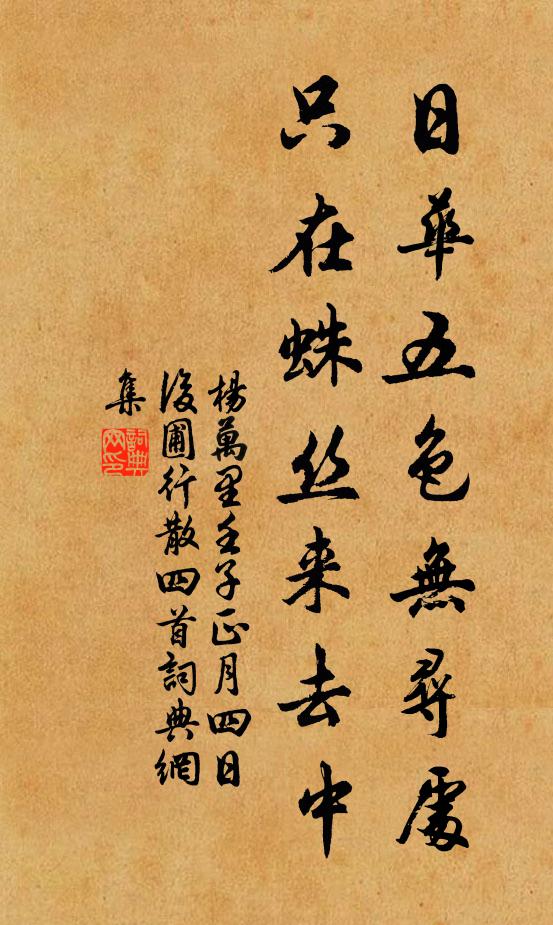 日華五色無尋處
只在蛛丝来去中
楊萬里壬子正月四日
後圃行散四首詞典網
集
詞典
网印